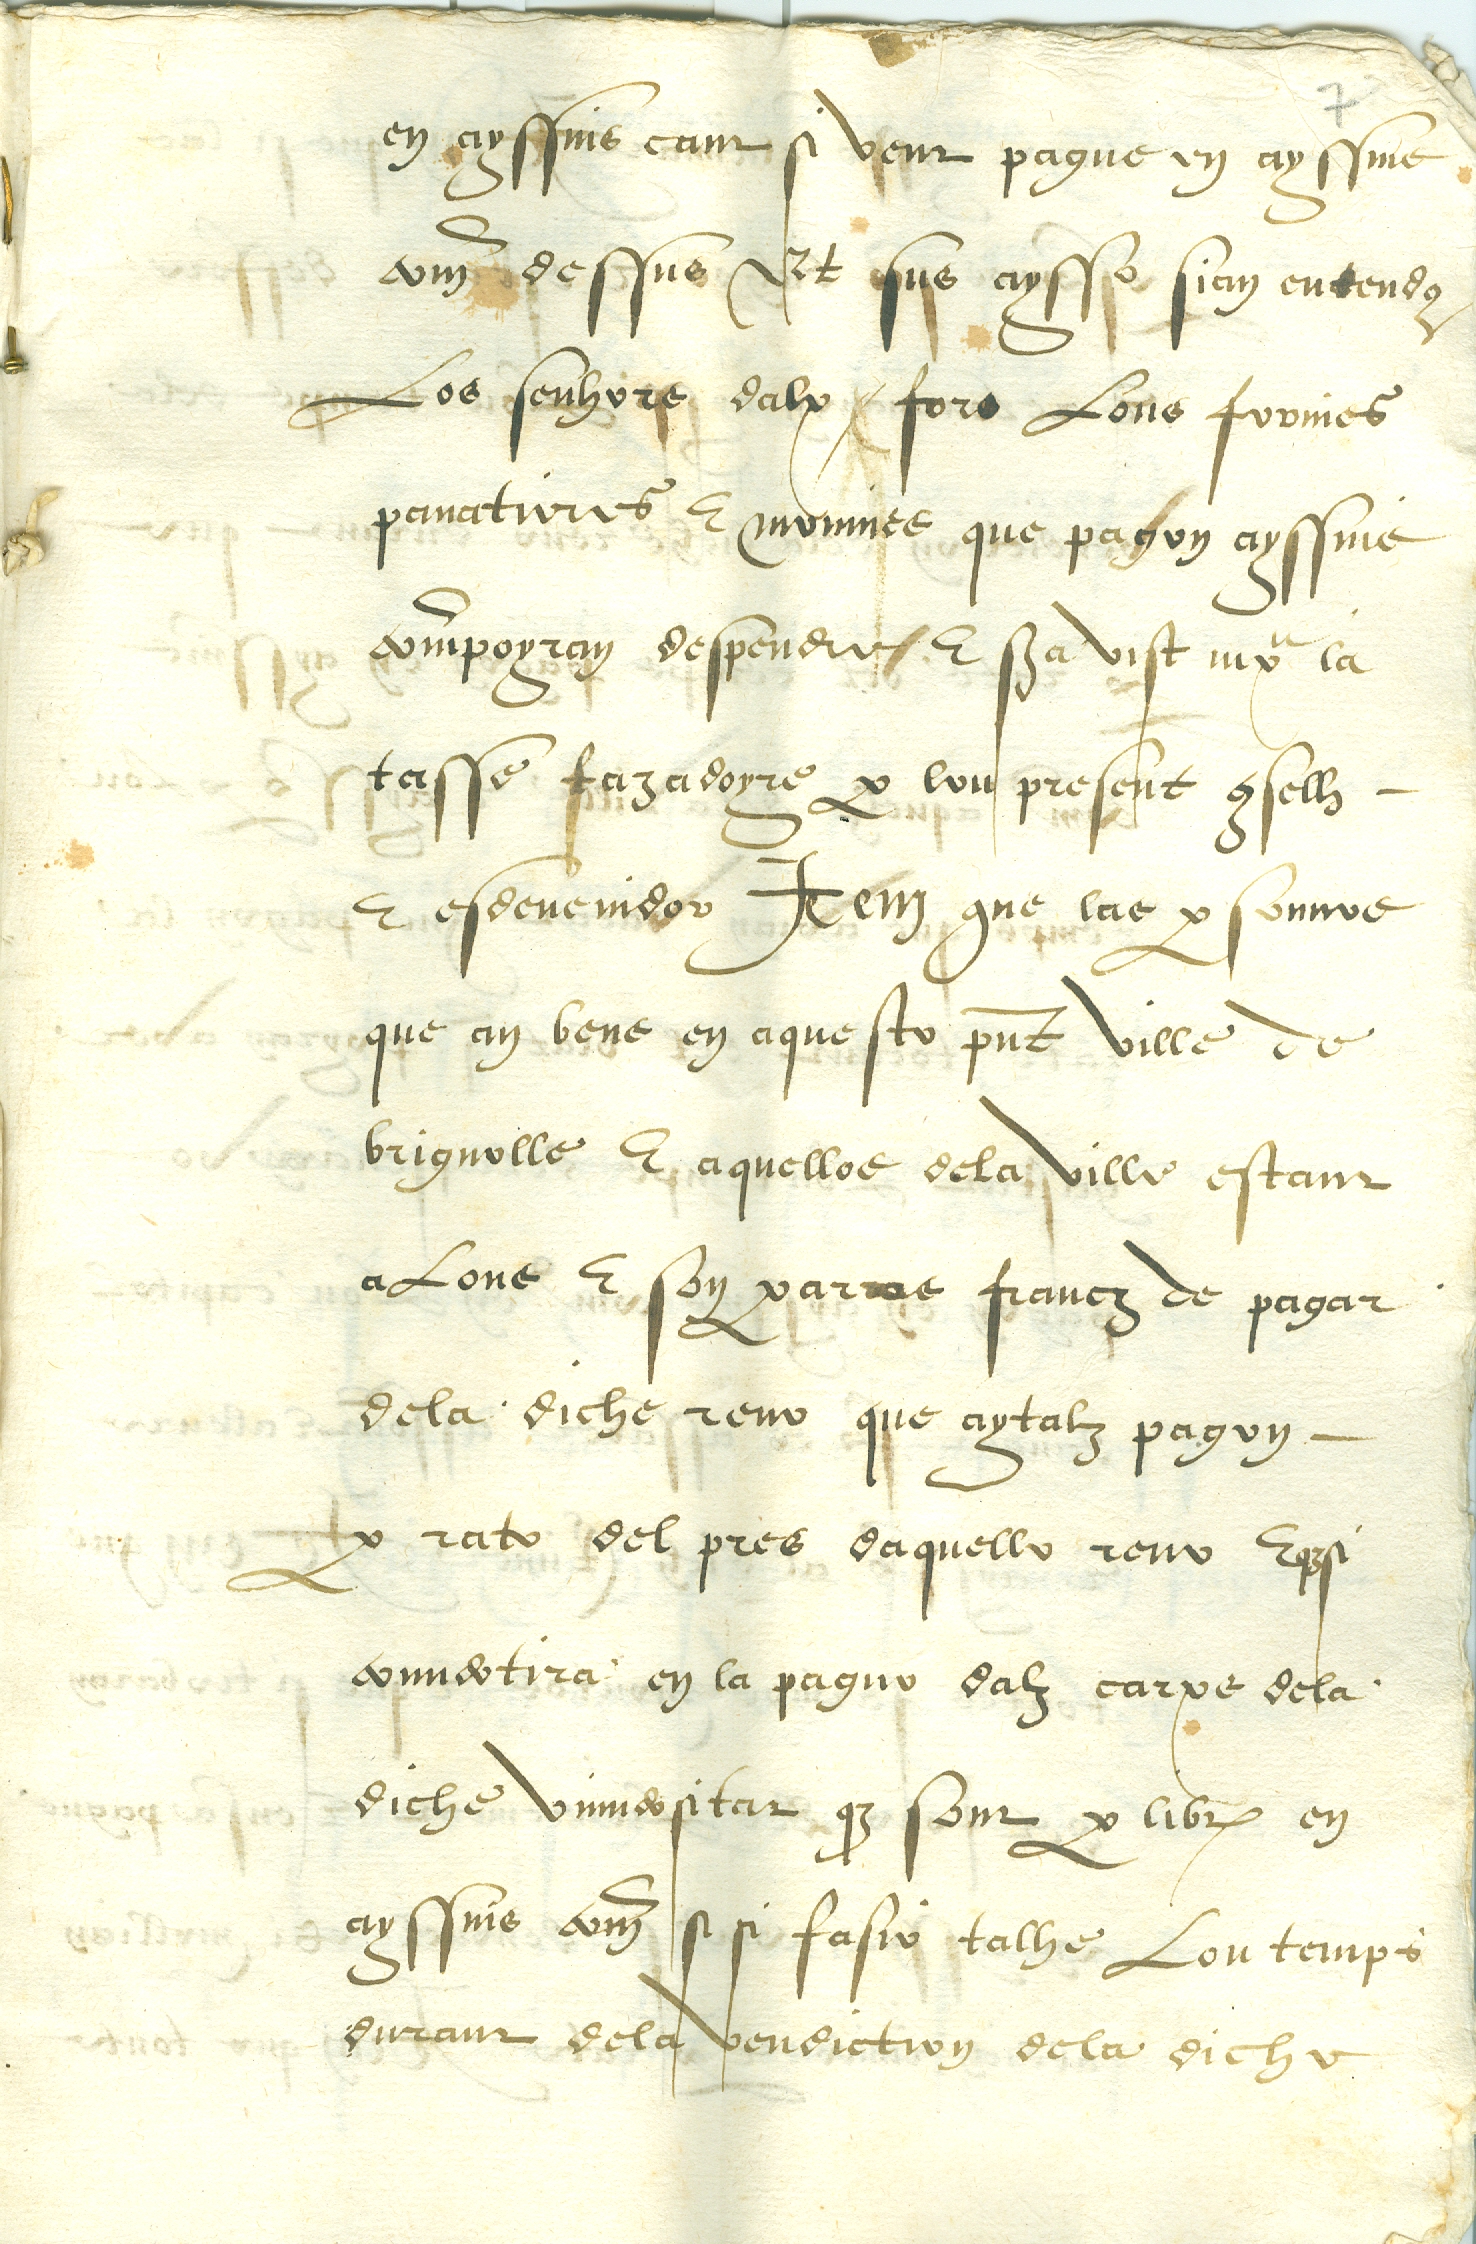 7
en ayssins cant si vent pague en ayssins
com dessus Et sus aysso sian entendz
Los senhors dalx fors Lous fornies
panatieres & monnies que pagon ayssins
com poyran despendre &
tasse fazadoyre p lou present 9selh
& esdevenidor Item que las psonnos
que an bens en aquesto pnt ville de
brignolle & aquellos dela ville estant
a Lone & son francz de pagar
dela diche reno que aytalz pagon
p rato del pres daquello reno
en la paguo dalz dela
diche universitat qz sont p libr en
ayssins com si si fasio talhe Lou temps
durant dela vendiction dela dicho